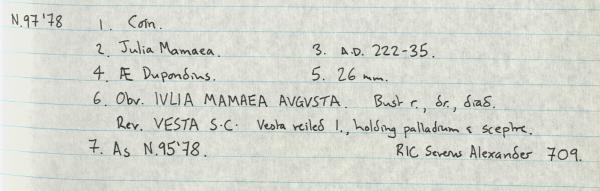 N.97'78 1. Coin.
2. Julia Mamaea. 3. A.D. 222-35.
4. Æ Dupondius. 5. 26 mm.
6. Obv. IVLIA MAMAEA AVGVSTA. Bust r., dr., diad.
Rev. VESTA S·C· Vesta veiled l., holding palladium & sceptre.
7. As N.95'78. RIC Severus Alexander 709.